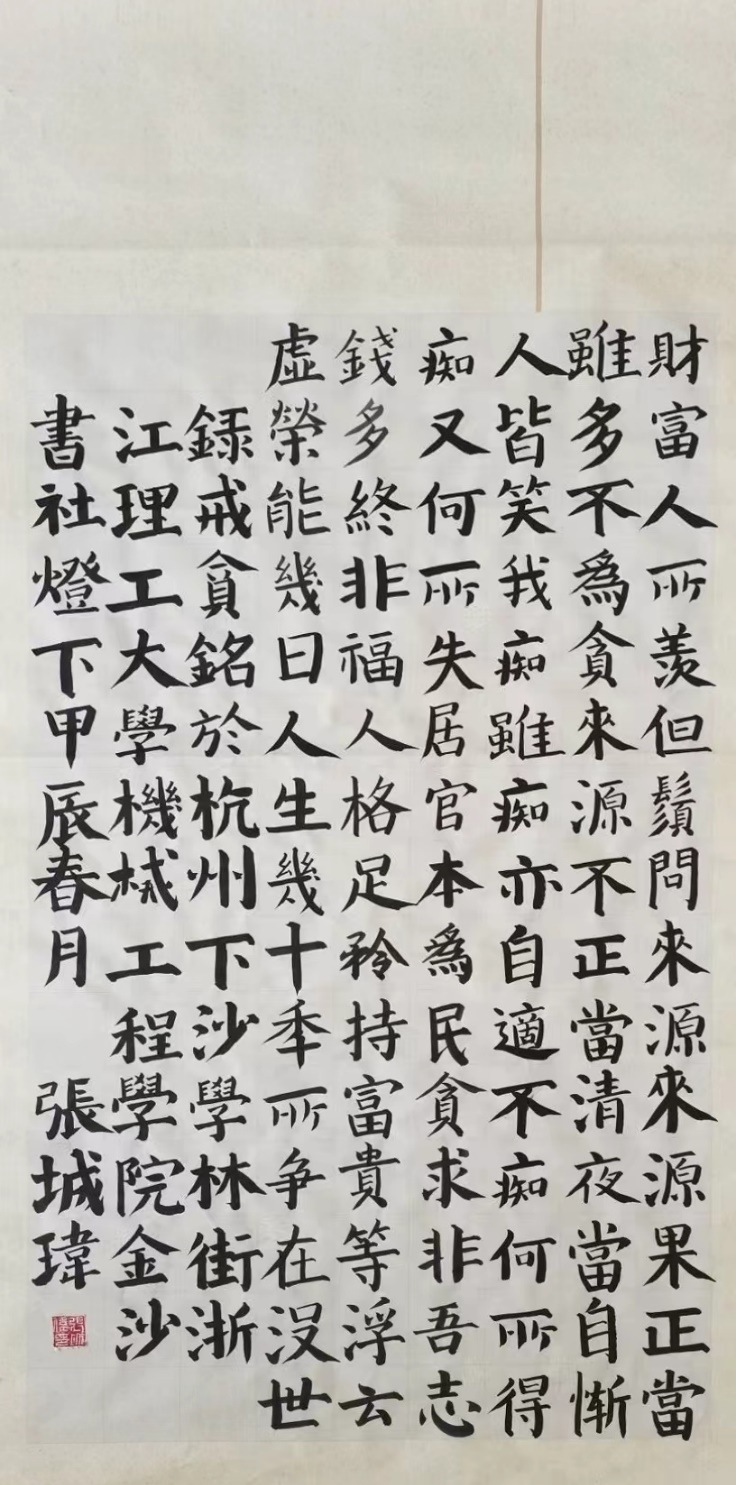 財富人所羨但鬚問來源來源果正當
雖多不為貪來源不正當清夜當自慚
人皆笑我痴雖痴亦自適不痴何所得
痴又何所失居官本為民貪求非吾志
錢多終非福人格足矜持富貴等浮云
虛榮能幾日人生幾十秊所争在沒世
録戒貪銘於杭州下沙學林街浙
江理工大學機械工程學院金沙
書社燈下甲辰春月 張城瑋